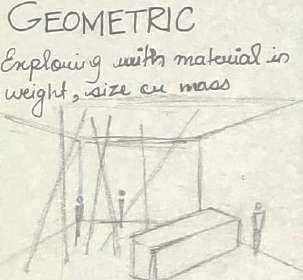 GEOMETRIC
Exploring with material in
weight, size cu mass